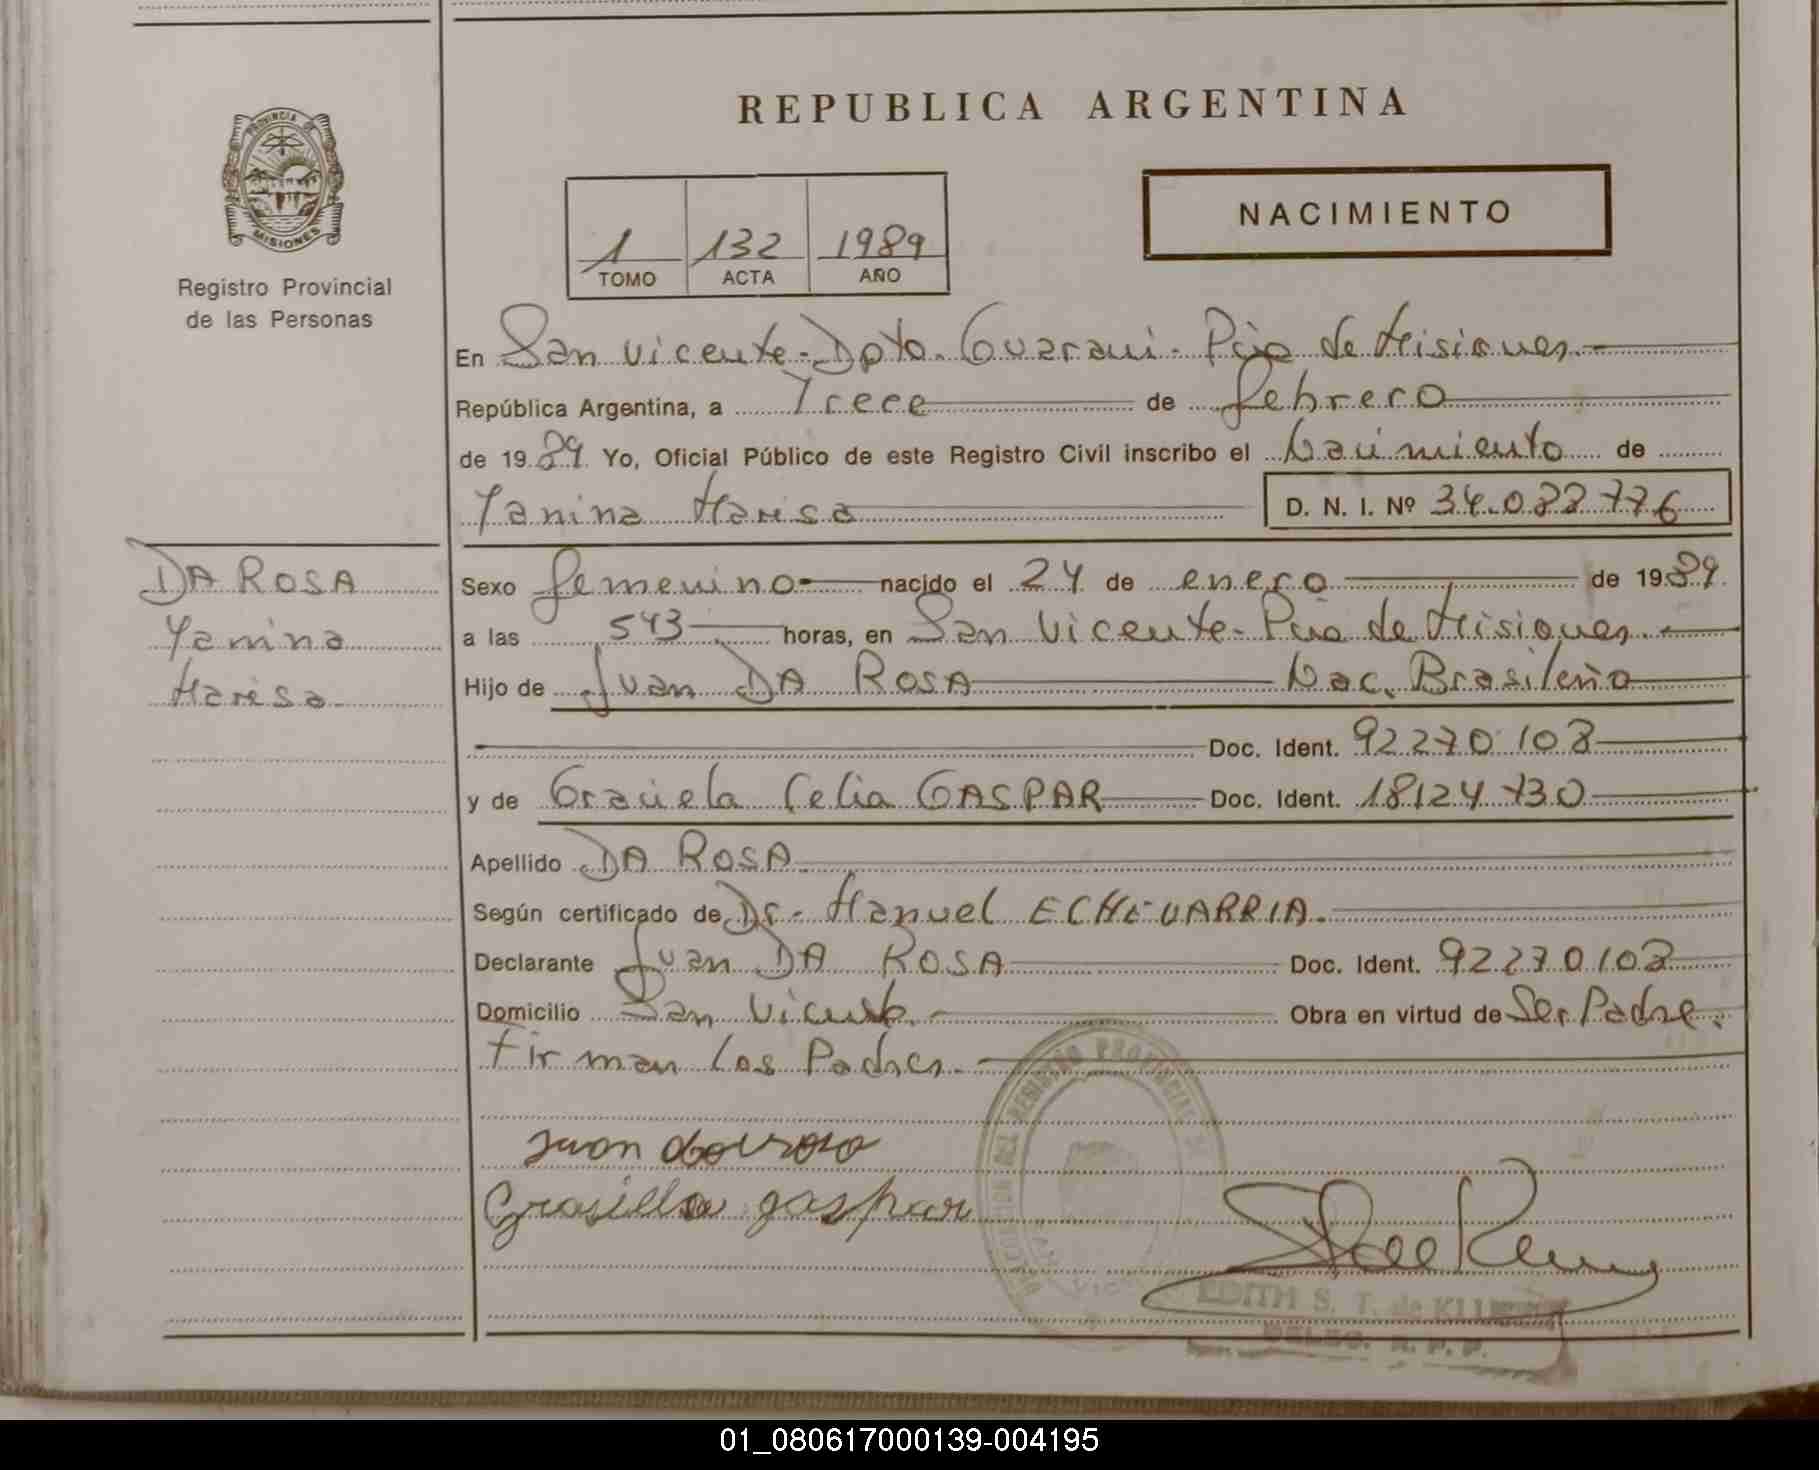 REPUBLICA ARGENTINA
PROVINCIA DE
MISIONES
Registro Provincial
de las Personas
NACIMIENTO
1 132 1989
TOMO ACTA AÑO
En San Vicente - Dpto. Guaraní - Pcia de Misiones.
República Argentina, a Trece de febrero
de 1989 Yo, Oficial Público de este Registro Civil inscribo el Nacimiento de
Yanina Marisa D. N. I. Nº 34.088776
DA ROSA
Yanina
Marisa
Sexo femenino nacido el 24 de enero de 1989
a las 543 horas, en San Vicente - Pcia de Misiones.
Hijo de Juan DA ROSA Nac. Brasileña
Doc. Ident. 92270108
y de Graciela Celia GASPAR Doc. Ident. 18124730
Apellido DA ROSA
Según certificado de Dr. Manuel ECHEVARRIA.
Declarante Juan DA ROSA Doc. Ident. 92270108
Domicilio San Vicente. Obra en virtud de Ser Padre.
Firman los Padres.
Juan da rosa
Grasiella gaspar
DEL REGISTRO PROVINCIAL DE
EDITH S. T. de
DELEG. R. P. P.
01_080617000139-004195